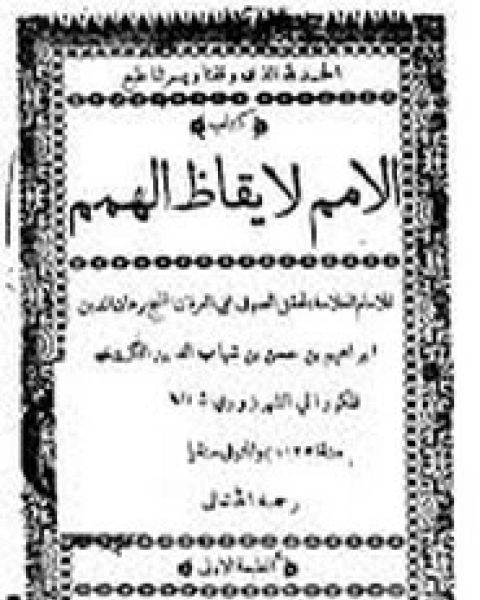 الحمد لله الذى وفقنا ويسر لنا طبع
كتاب
الامم لايقاظ الهمم
للامام العلامة المحقق الصوفى ابى العرفان الشيخ برهان الدين
ابراهيم بن حسن بن شهاب الدين الكردى
الكورانى الشهرزورى
رحمه الله تعالى
الطبعة الاولى